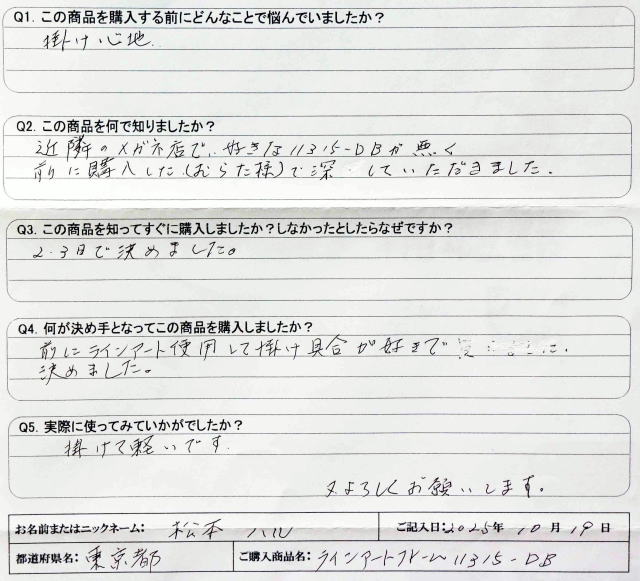 Q1. この商品を購入する前にどんなことで悩んでいましたか？
掛け心地.
Q2. この商品を何で知りましたか？
近隣のメガネ店で、好きな11315-DBが無く
前に購入した(むらた様)で深 していただきました.
Q3. この商品を知ってすぐに購入しましたか？しなかったとしたらなぜですか？
2.3日で決めました。
Q4. 何が決め手となってこの商品を購入しましたか？
前にラインアート使用して掛け具合が好きで
決めました。
Q5. 実際に使ってみていかがでしたか？
掛けて軽いです.
又よろしくお願いします.
お名前またはニックネーム： 松本 ハル ご記入日：2025年 10月 19日
都道府県名： 東京都 ご購入商品名： ラインアートフレーム 11315-DB